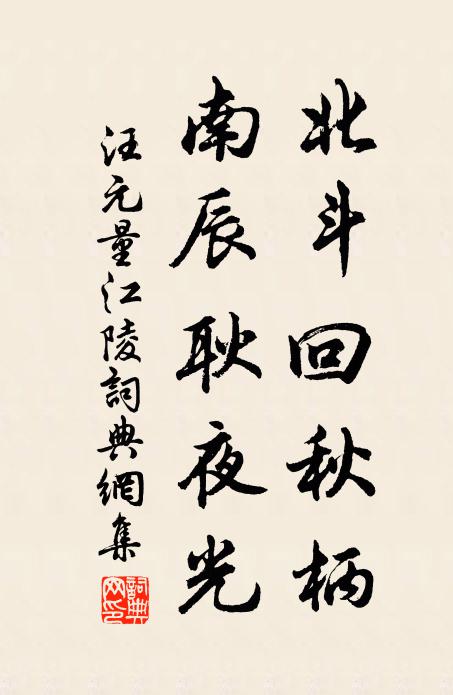 北斗回秋柄
南辰耿夜光
汪元量江陵詞典網集
詞典网印